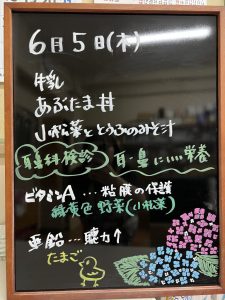 6月5日(木)
牛乳
あぶたま丼
小松菜ととうふのみそ汁
耳鼻科検診 耳・鼻にいい栄養
ビタミンA…粘膜の保護
緑黄色野菜(小松菜)
亜鉛…聴力↑
たまご